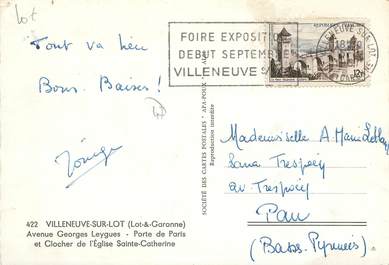 Lot
Tout va bien
Bons Baisers !
FOIRE EXPOSITION
DEBUT SEPTEMBRE
VILLENEUVE S
VILLENEUVE SUR LOT
REPUBLIQUE FRANÇAISE
SOCIÉTÉ DES CARTES POSTALES "APA-POUX"
Reproduction interdite
Mademoiselle A. Marie
Sana Trespoey
av Trespoey
Pau
(Basses Pyrénées)
422 VILLENEUVE-SUR-LOT (Lot-&-Garonne)
Avenue Georges Leygues - Porte de Paris
et Clocher de l'Église Sainte-Catherine